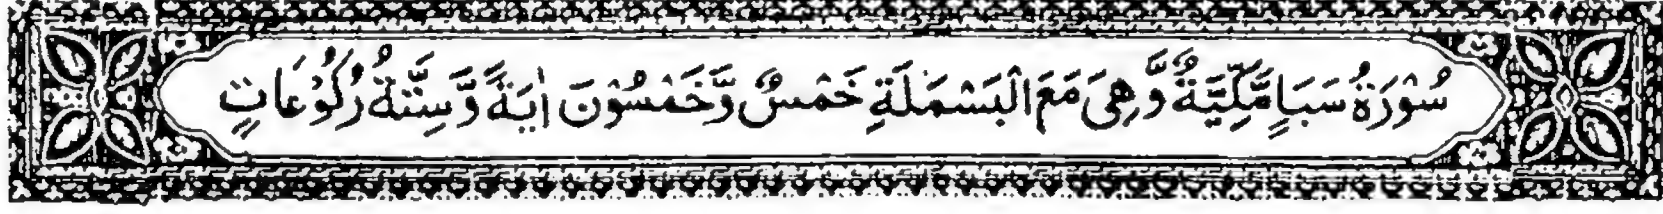 سُوْرَةُ سَبَاٍ مَّكِّيَّةٌ وَّهِىَ مَعَ الْبَسْمَلَةِ خَمْسٌ وَّخَمْسُوْنَ اٰيَةً وَّسِتَّةُ رُكُوْعَاتٍ